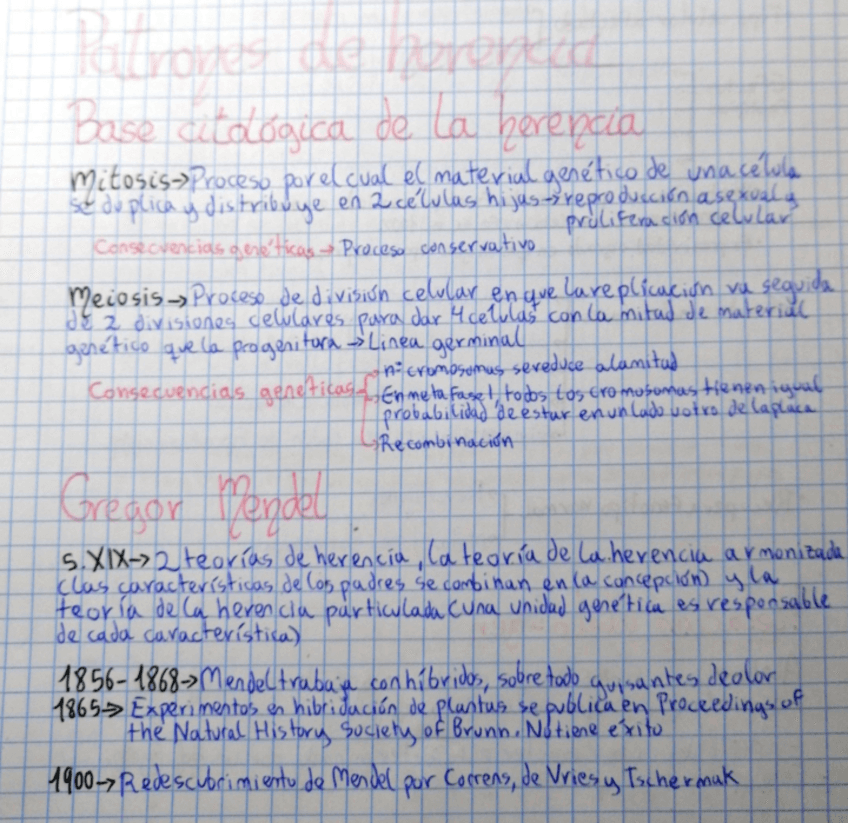 Patrones de herencia
Base citológica de la herencia
Mitosis→Proceso por el cual el material genético de una célula
se duplica y distribuye en 2 células hijas→reproducción asexual y
proliferación celular
Consecuencias genéticas→Proceso conservativo
Meiosis→Proceso de división celular en que la replicación va seguida
de 2 divisiones celulares para dar 4 celulas con la mitad de material
genético que la progenitora→Línea germinal
nº cromosomas se reduce a la mitad
Consecuencias genéticas
En metafase I, todos los cromosomas tienen igual
probabilidad de estar en un lado u otro de la placa
Recombinación
Gregor Mendel
S. XIX→2 teorías de herencia, la teoría de la herencia armonizada
(las características de los padres se combinan en la concepción) y la
teoría de la herencia particulada (una unidad genética es responsable
de cada característica)
1856-1868→Mendel trabaja con híbridos, sobre todo guisantes de olor
1865→Experimentos en hibridación de plantas se publica en Proceedings of
the Natural History Society of Brunn. No tiene éxito
1900→Redescubrimiento de Mendel por Correns, de Vries y Tschermak